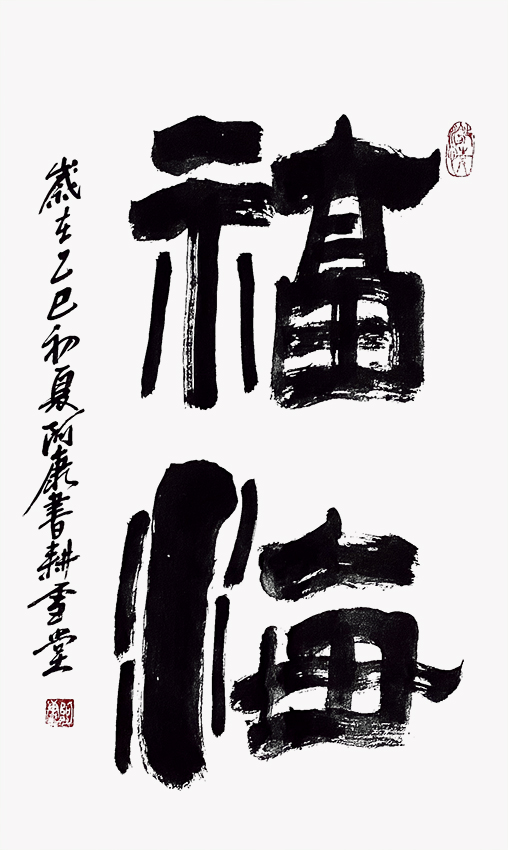 福海
歲在乙巳初夏阿康書耕雪堂